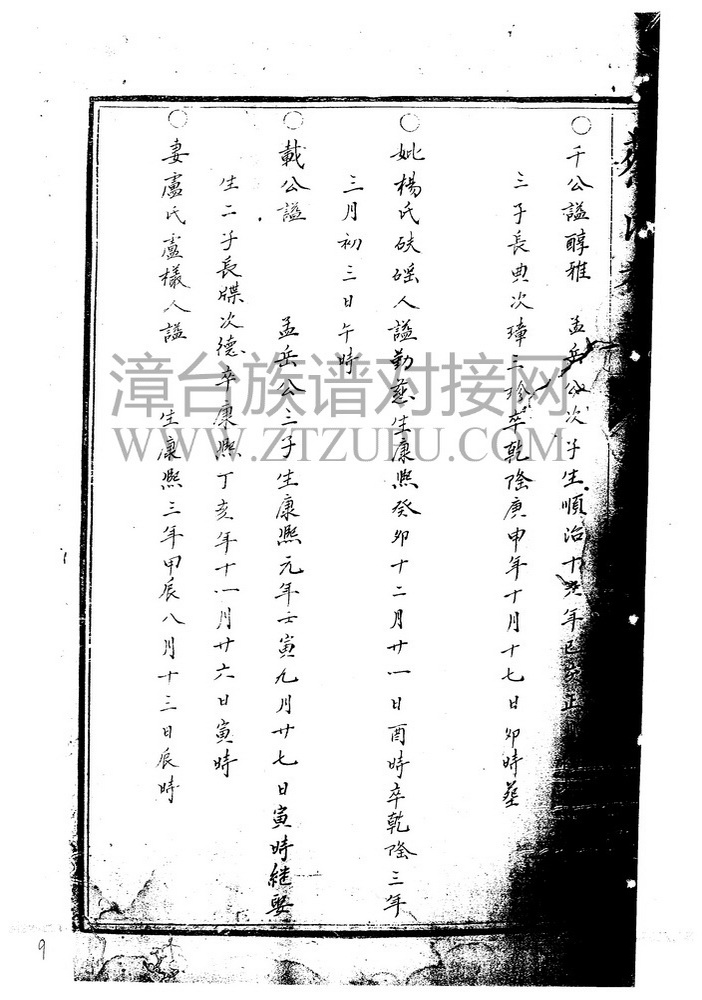 ○千公諡醇雅 孟岳公次子生順治十 年 正
三子長典次璋三珍卒乾隆庚申年十月十七日卯時葬
○妣楊氏 人諡勤慈生康熙癸卯十二月廿一日酉時卒乾隆三年
三月初三日午時
○載公諡 孟岳公三子生康熙元年壬寅九月廿七日寅時継娶
生二子長牒次德卒康熙丁亥年十一月廿六日寅時
○妻盧氏盧樣人諡 生康熙三年甲辰八月十三日辰時
漳台族谱对接网
WWW.ZTZUPU.COM
9